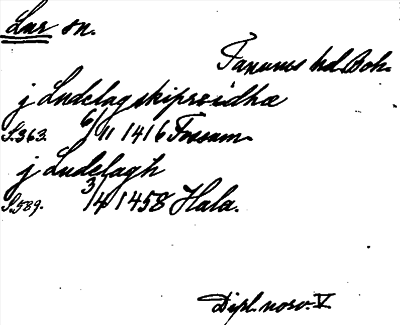 Lur sn.
Tanums hd. Boh.
j Ludelagskipreidhæ
S. 363. 6/11 1416 Fossam.
j Ludelagh
S. 589. 3/4 1458 Hala.
Dipl. norv. V